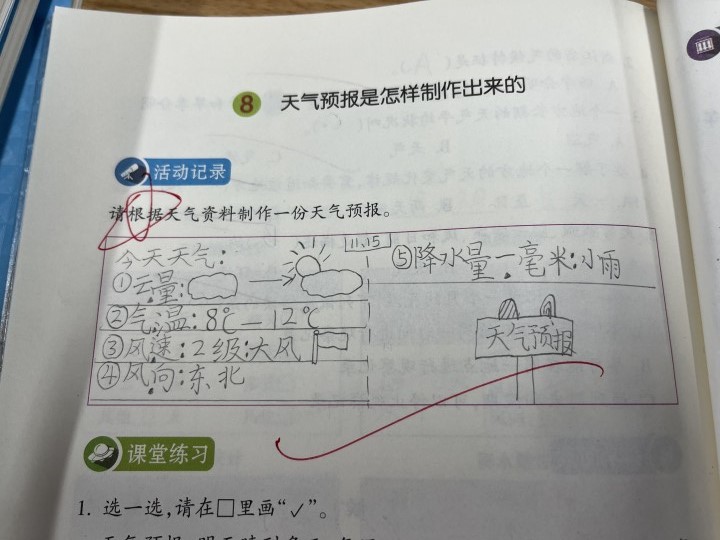 8 天气预报是怎样制作出来的
活动记录
请根据天气资料制作一份天气预报。
今天天气:
11.15
①云量:
②气温:8℃—12℃
③风速:2级:大风
④风向:东北
⑤降水量一毫米:小雨
天气预报
课堂练习
1. 选一选,请在□里画“✓”。